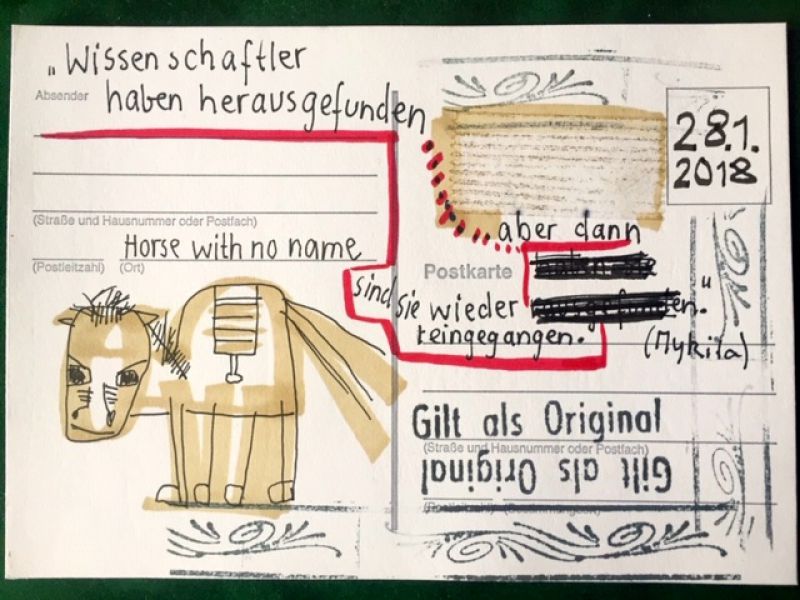 „Wissenschaftler
Absender
haben herausgefunden
28.1.
2018
(Straße und Hausnummer oder Postfach)
aber dann
Horse with no name
(Postleitzahl) (Ort)
Postkarte
sind sie wieder "
reingegangen.
(Mykita)
Gilt als Original
(Straße und Hausnummer oder Postfach)
Gilt als Original
(Postleitzahl) (Bestimmungsort)